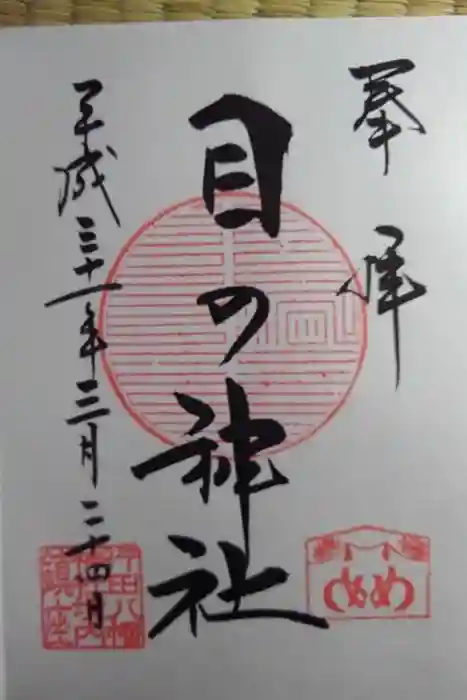 奉拝
目の神社
平成三十一年三月二十四日
鎮座